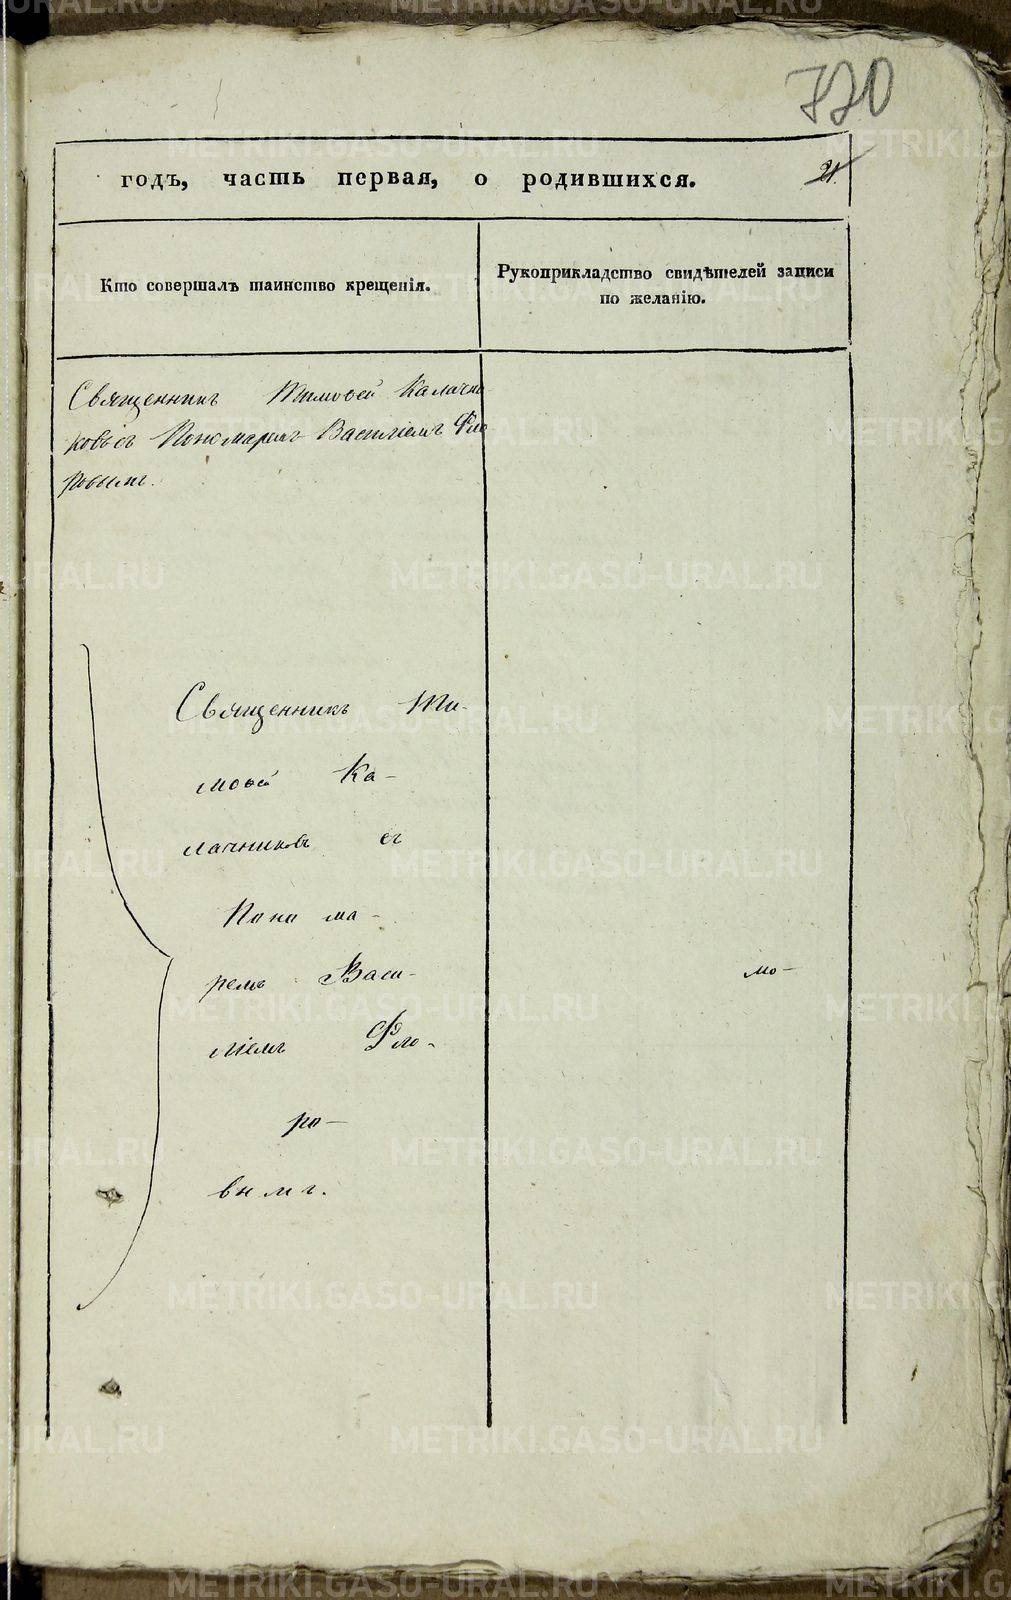 720
годъ, часть первая, о родившихся.
21.
Кто совершалъ таинство крещенія.
Рукоприкладство свидѣтелей записи
по желанію.
Священникъ Тимоѳей Калачни-
ковъ съ Пономаремъ Василіемъ Фло
ровымъ.
Священникъ Ти-
моѳей Ка-
лачниковъ съ
Поно ма-
ремъ Васи-
ліемъ Фло-
ро-
вымъ.
мо-
METRIKI.GASO-URAL.RU